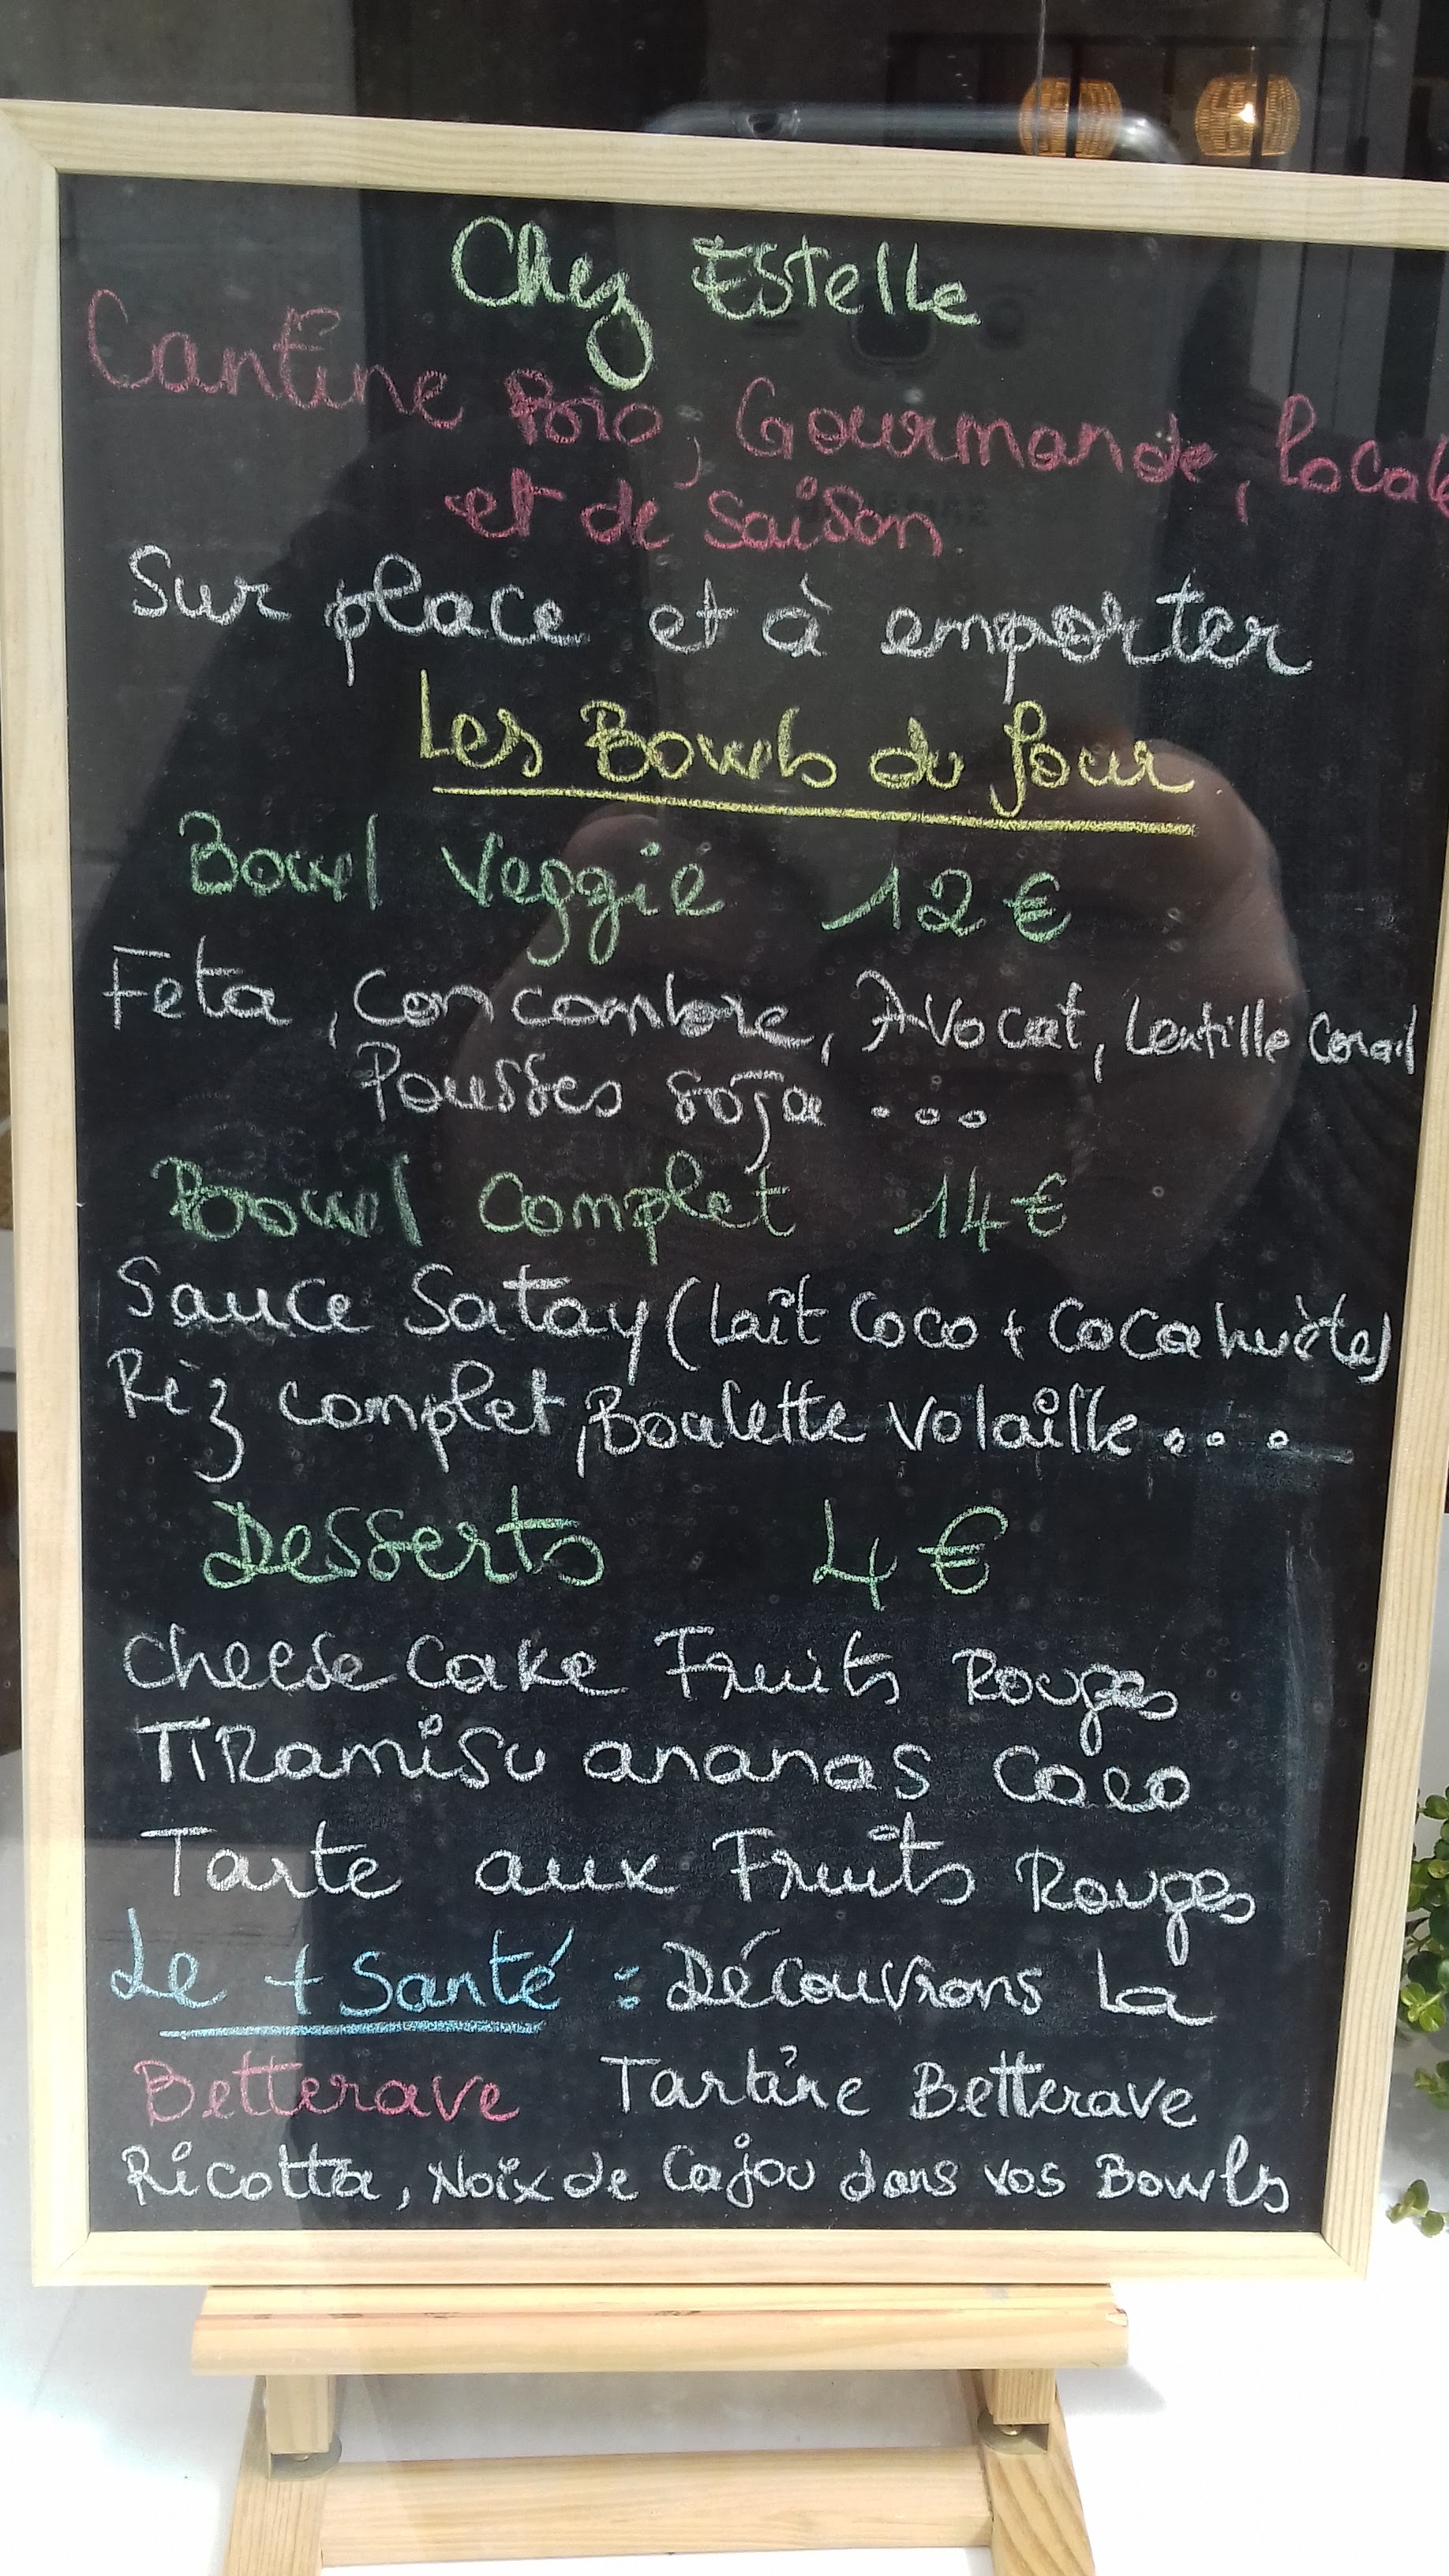 Chez Estelle
Cantine Bio, Gourmande, Locale
et de saison
Sur place et à emporter
Les Bowls du Jour
Bowl Veggie 12€
Feta, Concombre, Avocat, Lentille Corail
Pousses soja ...
Bowl Complet 14€
Sauce Satay (Lait Coco + Cacahuète)
Riz complet, Boulette Volaille...
Desserts 4€
Cheese Cake Fruits Rouges
TIRamisu ananas Coco
Tarte aux Fruits Rouges
Le + Santé : Découvrons La
Betterave Tartine Betterave
Ricotta, Noix de Cajou dans vos Bowls